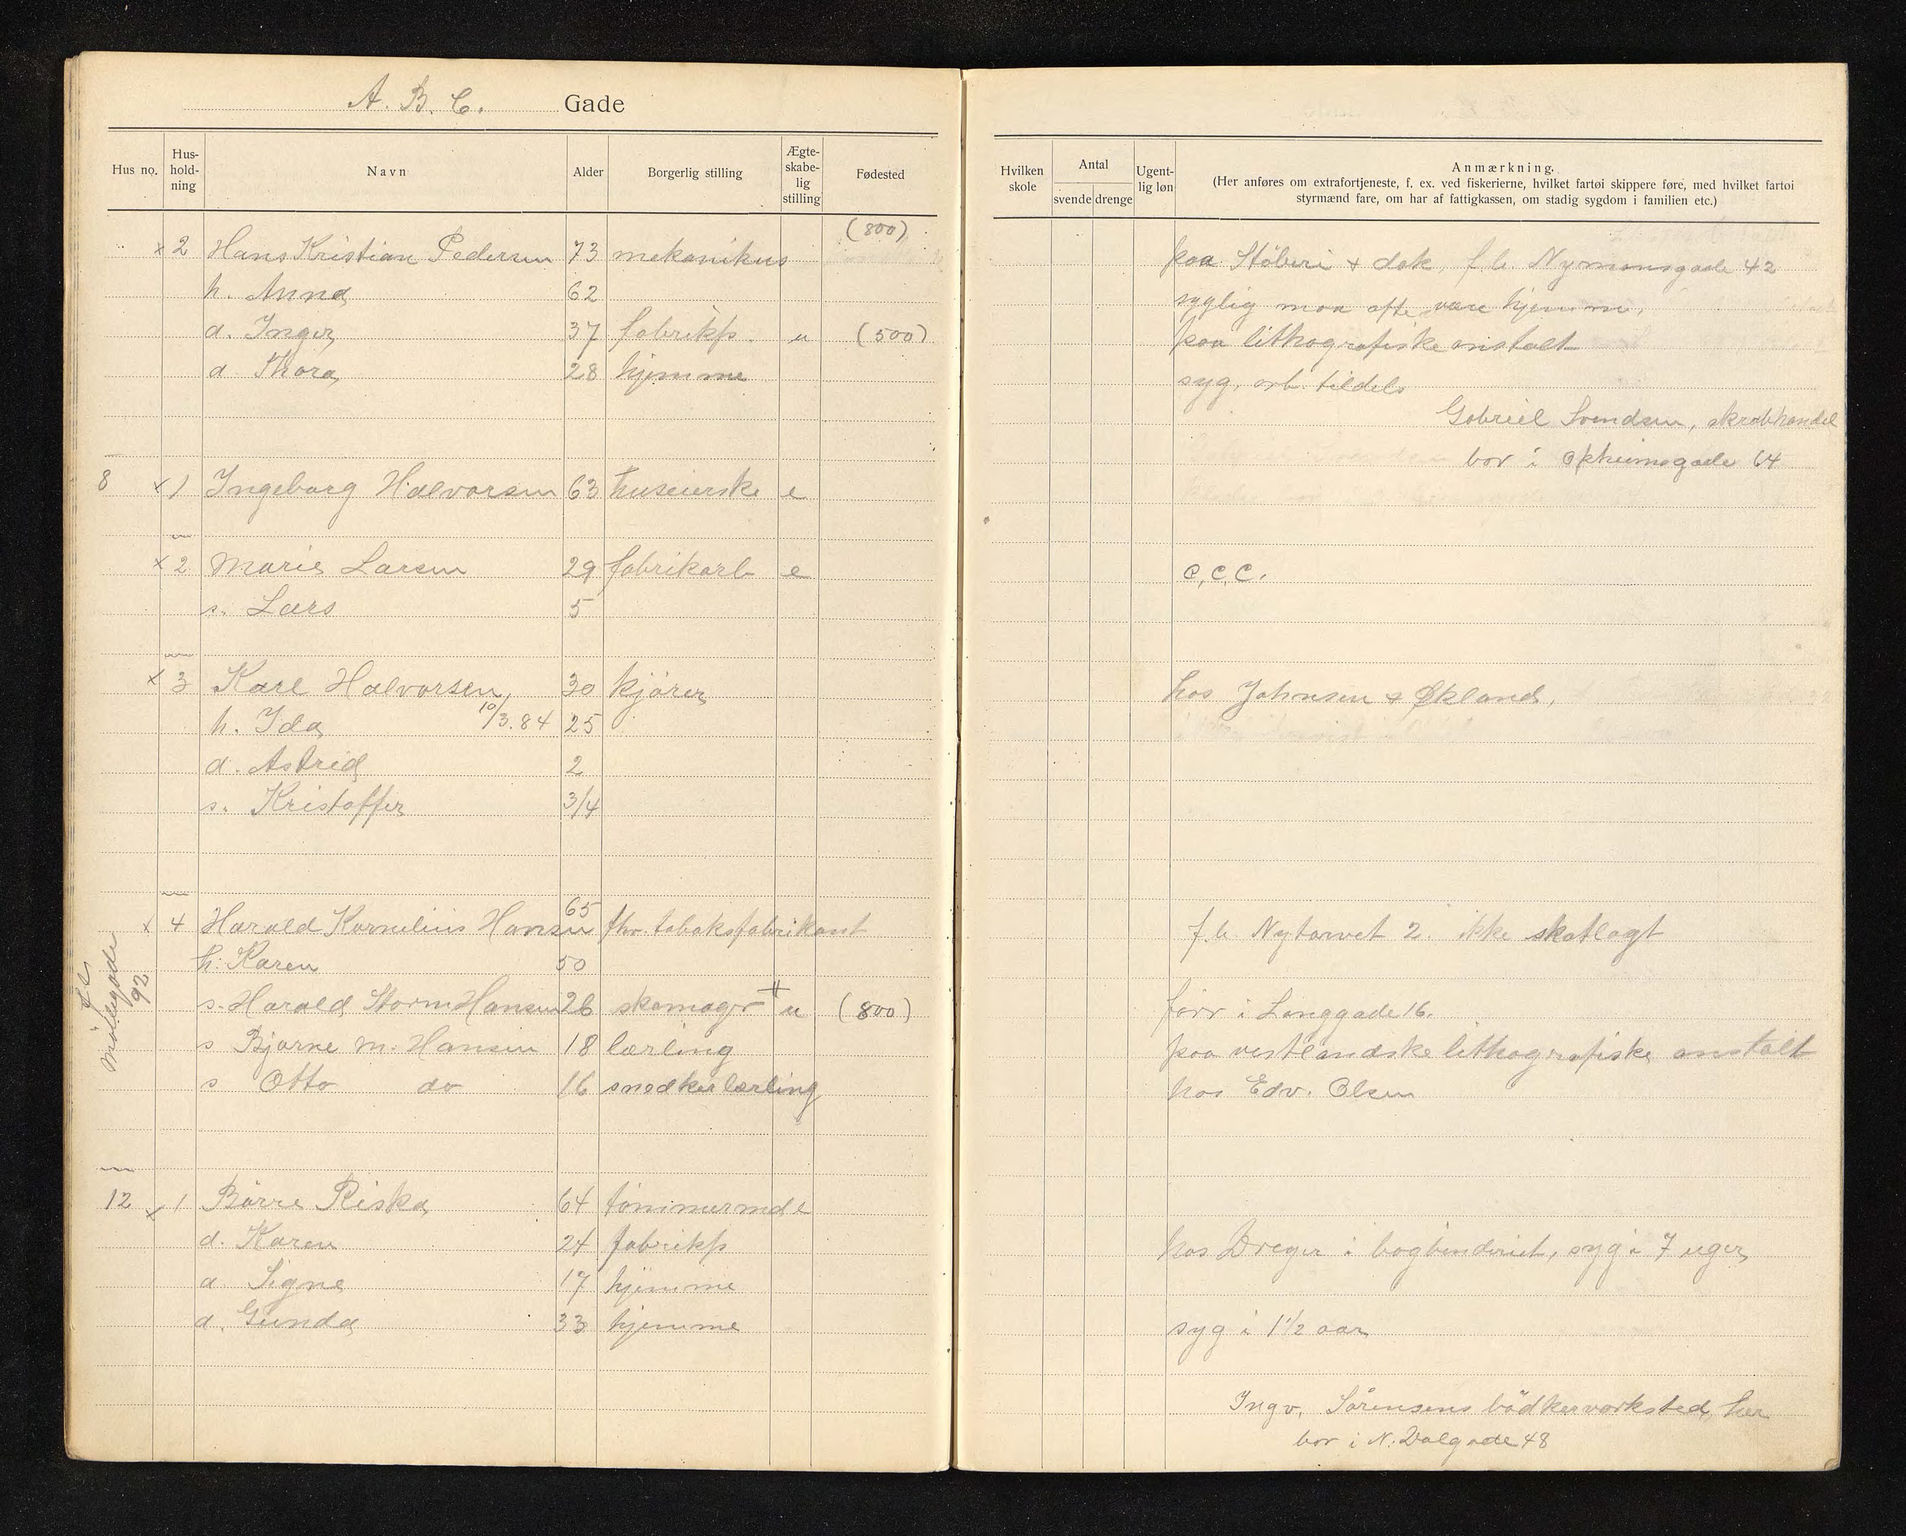 A. B. C. Gade
Hus no. Hus-hold-ning Navn Alder Borgerlig stilling Ægte-skabe-lig stilling Fødested
Hvilken skole Antal svende drenge Ugent-lig løn Anmærkning.
(Her anføres om extrafortjeneste, f. ex. ved fiskerierne, hvilket fartøi skippere føre, med hvilket fartøi
styrmænd fare, om har af fattigkassen, om stadig sygdom i familien etc.)
(800)
x 2 Hans Kristian Pedersen 73 mekanikus paa Støberi & dok, f.b. Nymansgade 42
h. Anna 62 syglig maa ofte være hjemme,
d. Inger 37 fabrikp. u (500) paa lithografiske anstalt
d Thora 28 hjemme syg, arb. tildels
Gabriel Svendsen, skrabhandel
bor i Opheimsgade 64
8 x 1 Ingeborg Halvorsen 63 huseierske e
x 2 Marie Larsen 29 fabrikarb e C.C.C.
s. Lars 5
x 3 Karl Halvorsen, 30 kjører hos Johnsen & Økland,
h. Ida 10/3.84 25
d. Astrid 2
s. Kristoffer 3/4
x 4 Harald Kornelius Hansen 65 fhv. tobaksfabrikant f.b. Nytorvet 2. ikke skatlagt
h. Karen 50
s. Harald Storm Hansen 26 skomager + u (800) førr i Langgade 16.
Møllegade 92
s Bjarne M. Hansen 18 lærling paa vestlandske lithografiske anstalt
s Otto do 16 snedkerlærling hos Edv. Olsen
12 x 1 Børre Riska 64 tømmermd e
d. Karen 24 fabrikp hos Dreyer i bogbinderiet, syg i 7 uger
d. Signe 17 hjemme
d. Gunda 33 hjemme syg i 1 1/2 aar
Ingv. Sørensens bødkerverksted, her
bor i N. Dalgade 48